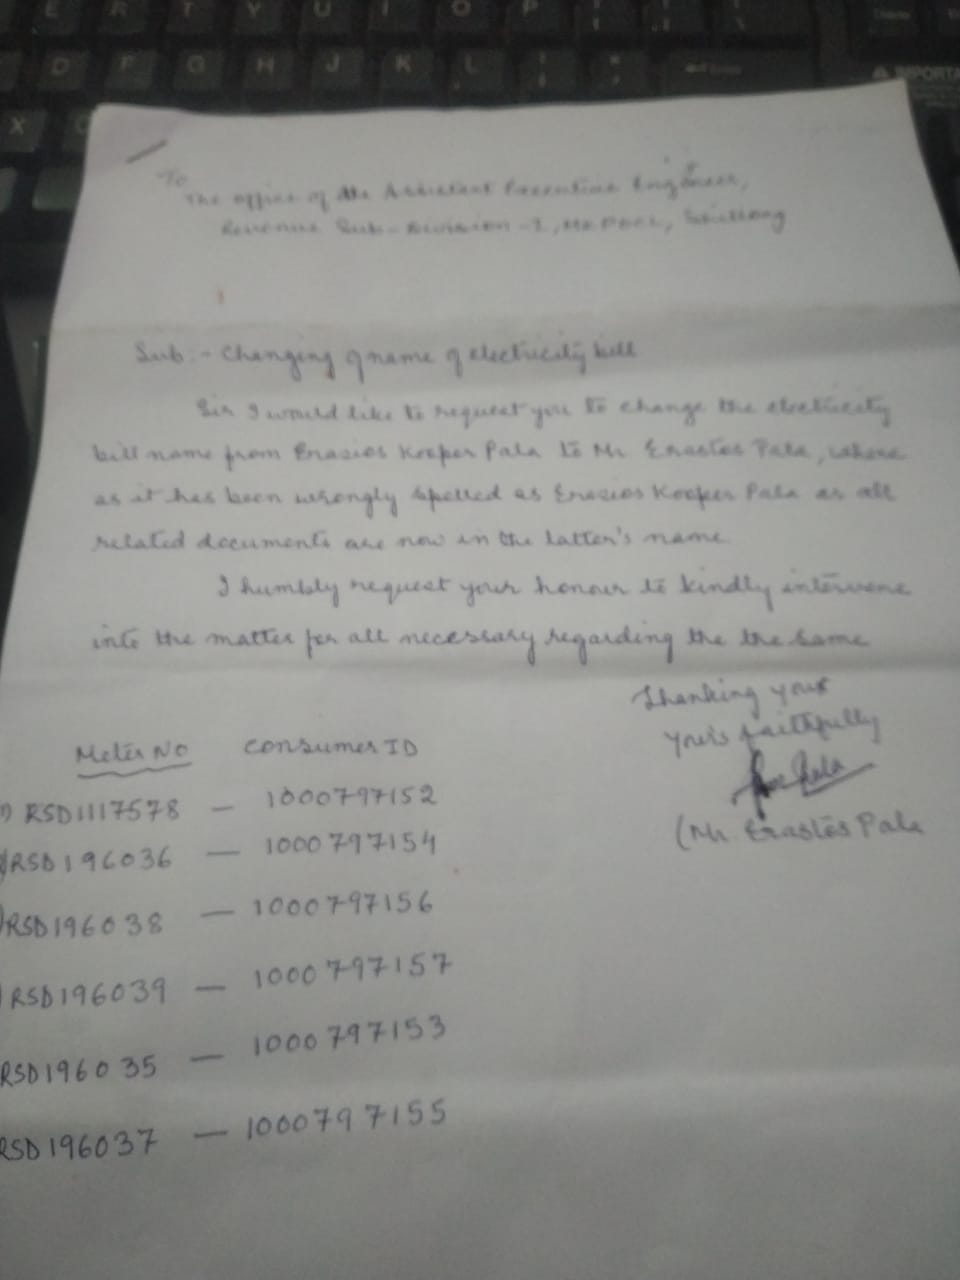 E R T Y U I O P
D F G H J K L
X
IMPORTA
To
The office of the Assistant Executive Engineer,
Revenue Sub-Division-I, MePDCL, Shillong
Sub:- Changing of name of electricity bill
Sir I would like to request you to change the electricity
bill name from Erasios Kooper Pala to Mr Erastos Pala, where
as it has been wrongly spelled as Erasios Kooper Pala as all
related documents are now in the latter's name
I humbly request your honour to kindly intervene
into the matter for all necessary regarding the the same
Thanking your
Your's faithfully
Pala
(Mr Erastos Pala
Meter No Consumer ID
1) RSD1117578 — 1000797152
)RSD196036 — 1000797154
)RSD196038 — 1000797156
)RSD196039 — 1000797157
RSD196035 — 1000797153
RSD196037 — 1000797155